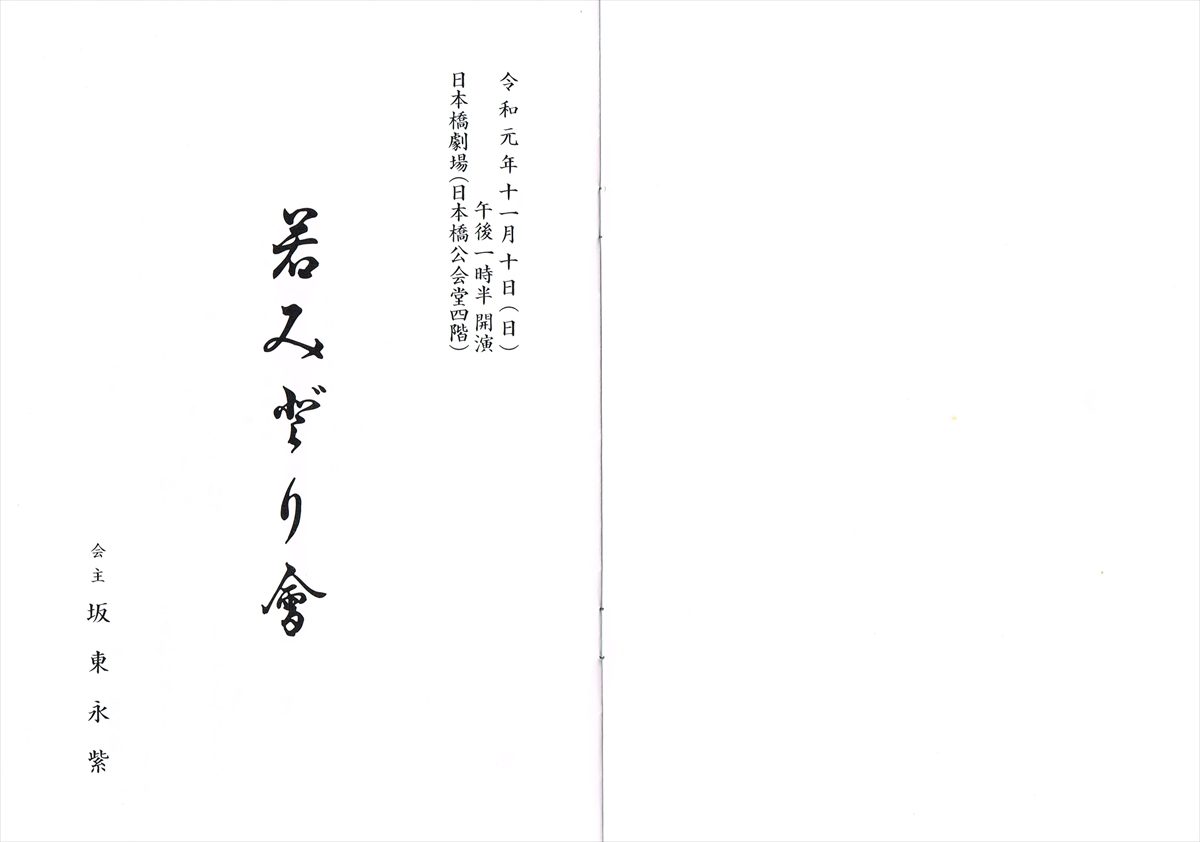 令和元年十一月十日(日)
午後一時半開演
日本橋劇場(日本橋公会堂四階)
若みどり會
会主 坂東永紫